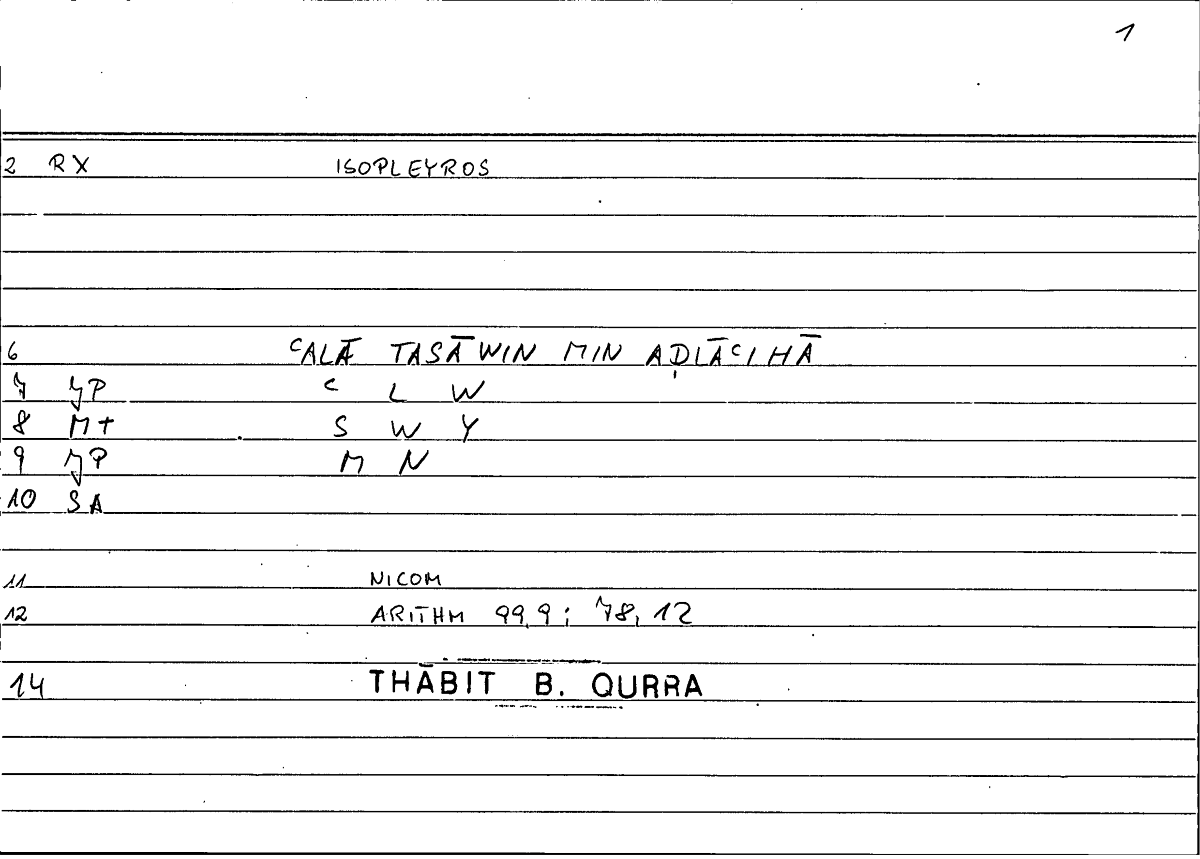 1
2 RX ISOPLEYROS
6 ᶜALĀ TASĀWIN MIN AḌLĀᶜIHĀ
7 JP ᶜ L W
8 M+ S W Y
9 JP M N
10 SA
11 NICOM
12 ARITHM 99,9; 78,12
14 THĀBIT B. QURRA